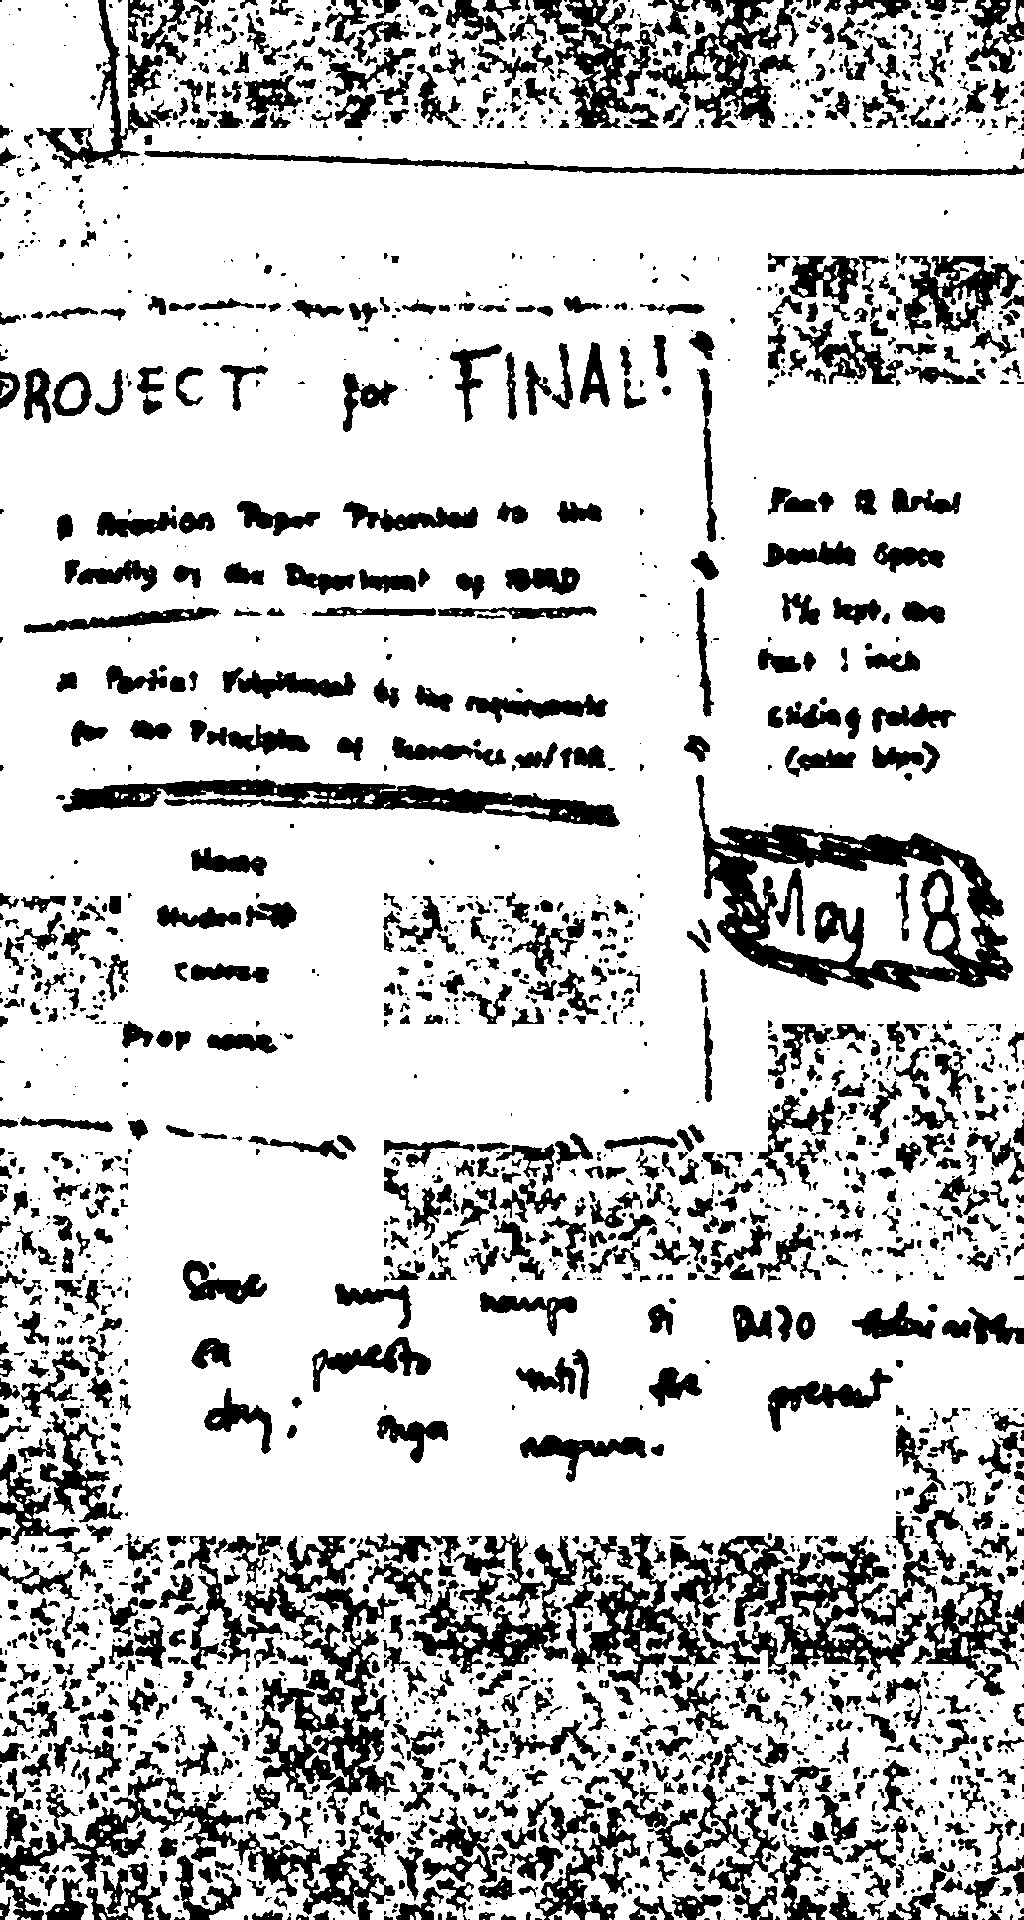 PROJECT for FINAL!
A Reaction Paper Presented to the
Faculty of the Department of
In Partial Fulfillment of the requirements
for the Principles of Economics w/ TAR
Name
Student ID
Course
Prof name
Font 12 Arial
Double Space
1½ left, the
rest 1 inch
Sliding folder
(color blue)
May 18
Since nung naupo si Du30
sa pwesto until the present
day, mga nagawa.